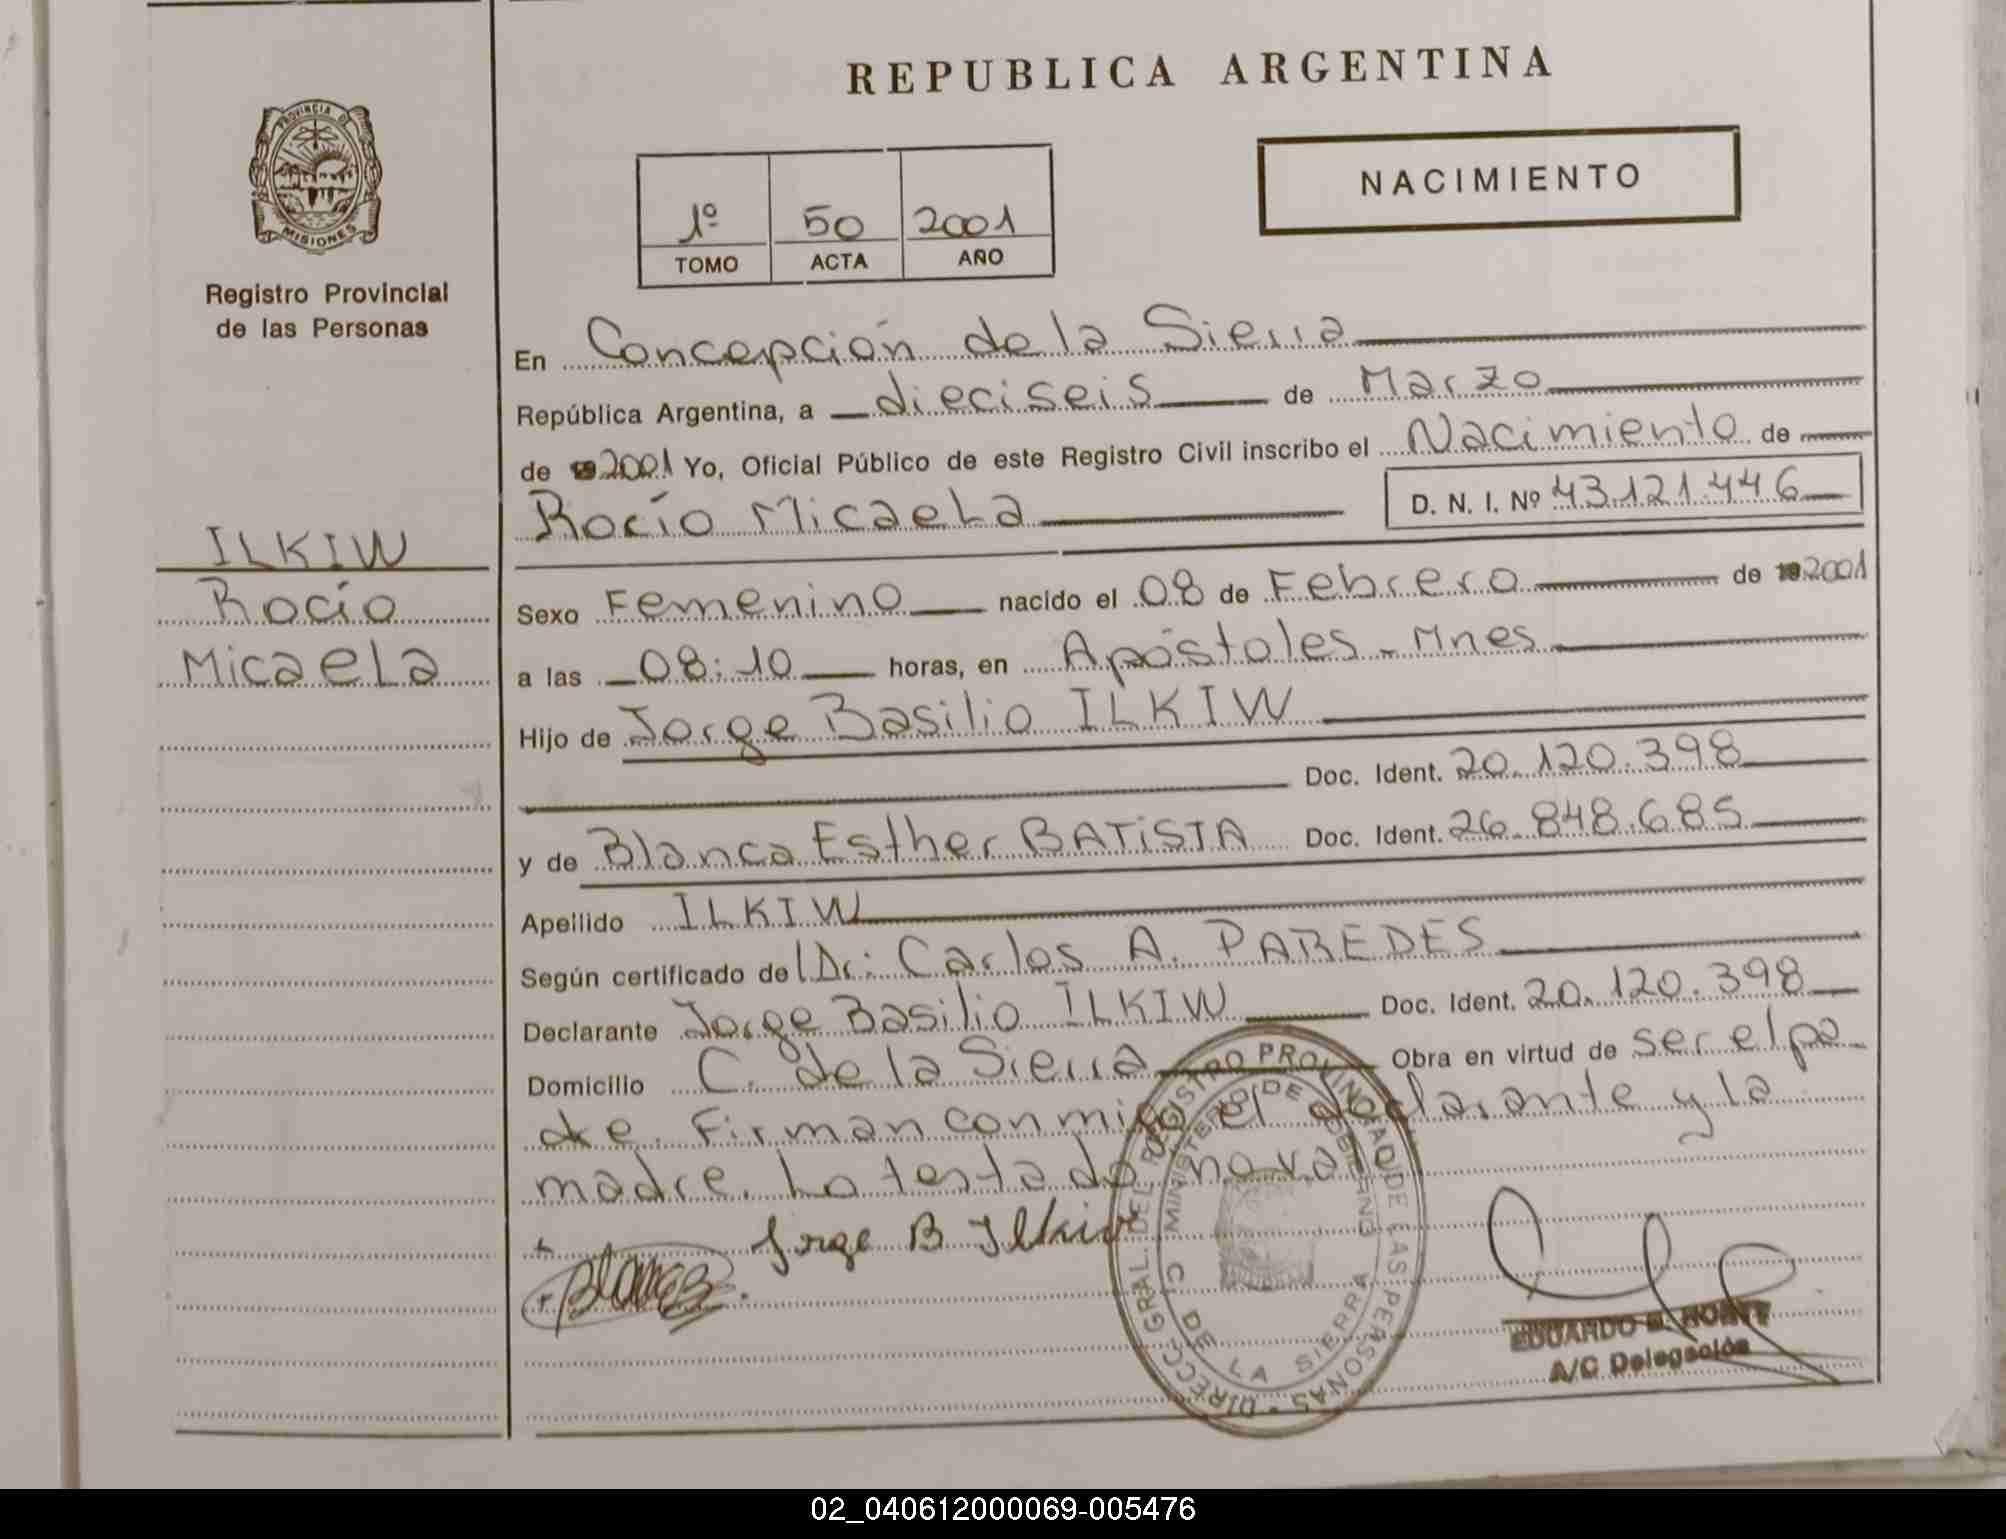 REPUBLICA ARGENTINA
PROVINCIA DE
MISIONES
Registro Provincial
de las Personas
NACIMIENTO
1º 50 2001
TOMO ACTA AÑO
En Concepción de la Sierra
República Argentina, a dieciseis de Marzo
de 2001 Yo, Oficial Público de este Registro Civil inscribo el Nacimiento de
Rocío Micaela D. N. I. Nº 43.121.446
ILKIW
Rocío
Micaela
Sexo Femenino nacido el 08 de Febrero de 19 2001
a las 08:10 horas, en Apóstoles - Mnes
Hijo de Jorge Basilio ILKIW
Doc. Ident. 20.120.398
y de Blanca Esther BATISTA Doc. Ident. 26.848.685
Apellido ILKIW
Según certificado del Dr: Carlos A. PAREDES
Declarante Jorge Basilio ILKIW Doc. Ident. 20.120.398
Domicilio C. de la Sierra Obra en virtud de ser el pa-
dre. Firman conmigo el declarante y la
madre. Lo testado no vale
Jorge B Ilkiw
DIRECC. GRAL. DEL REGISTRO PROVINCIAL DE LAS PERSONAS
MINISTERIO DE GOBIERNO
C. DE LA SIERRA
EDUARDO
A/C Delegación
02_040612000069-005476